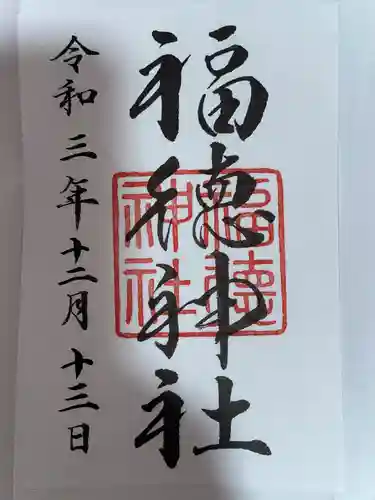 福徳神社
福徳神社
令和三年十二月十三日